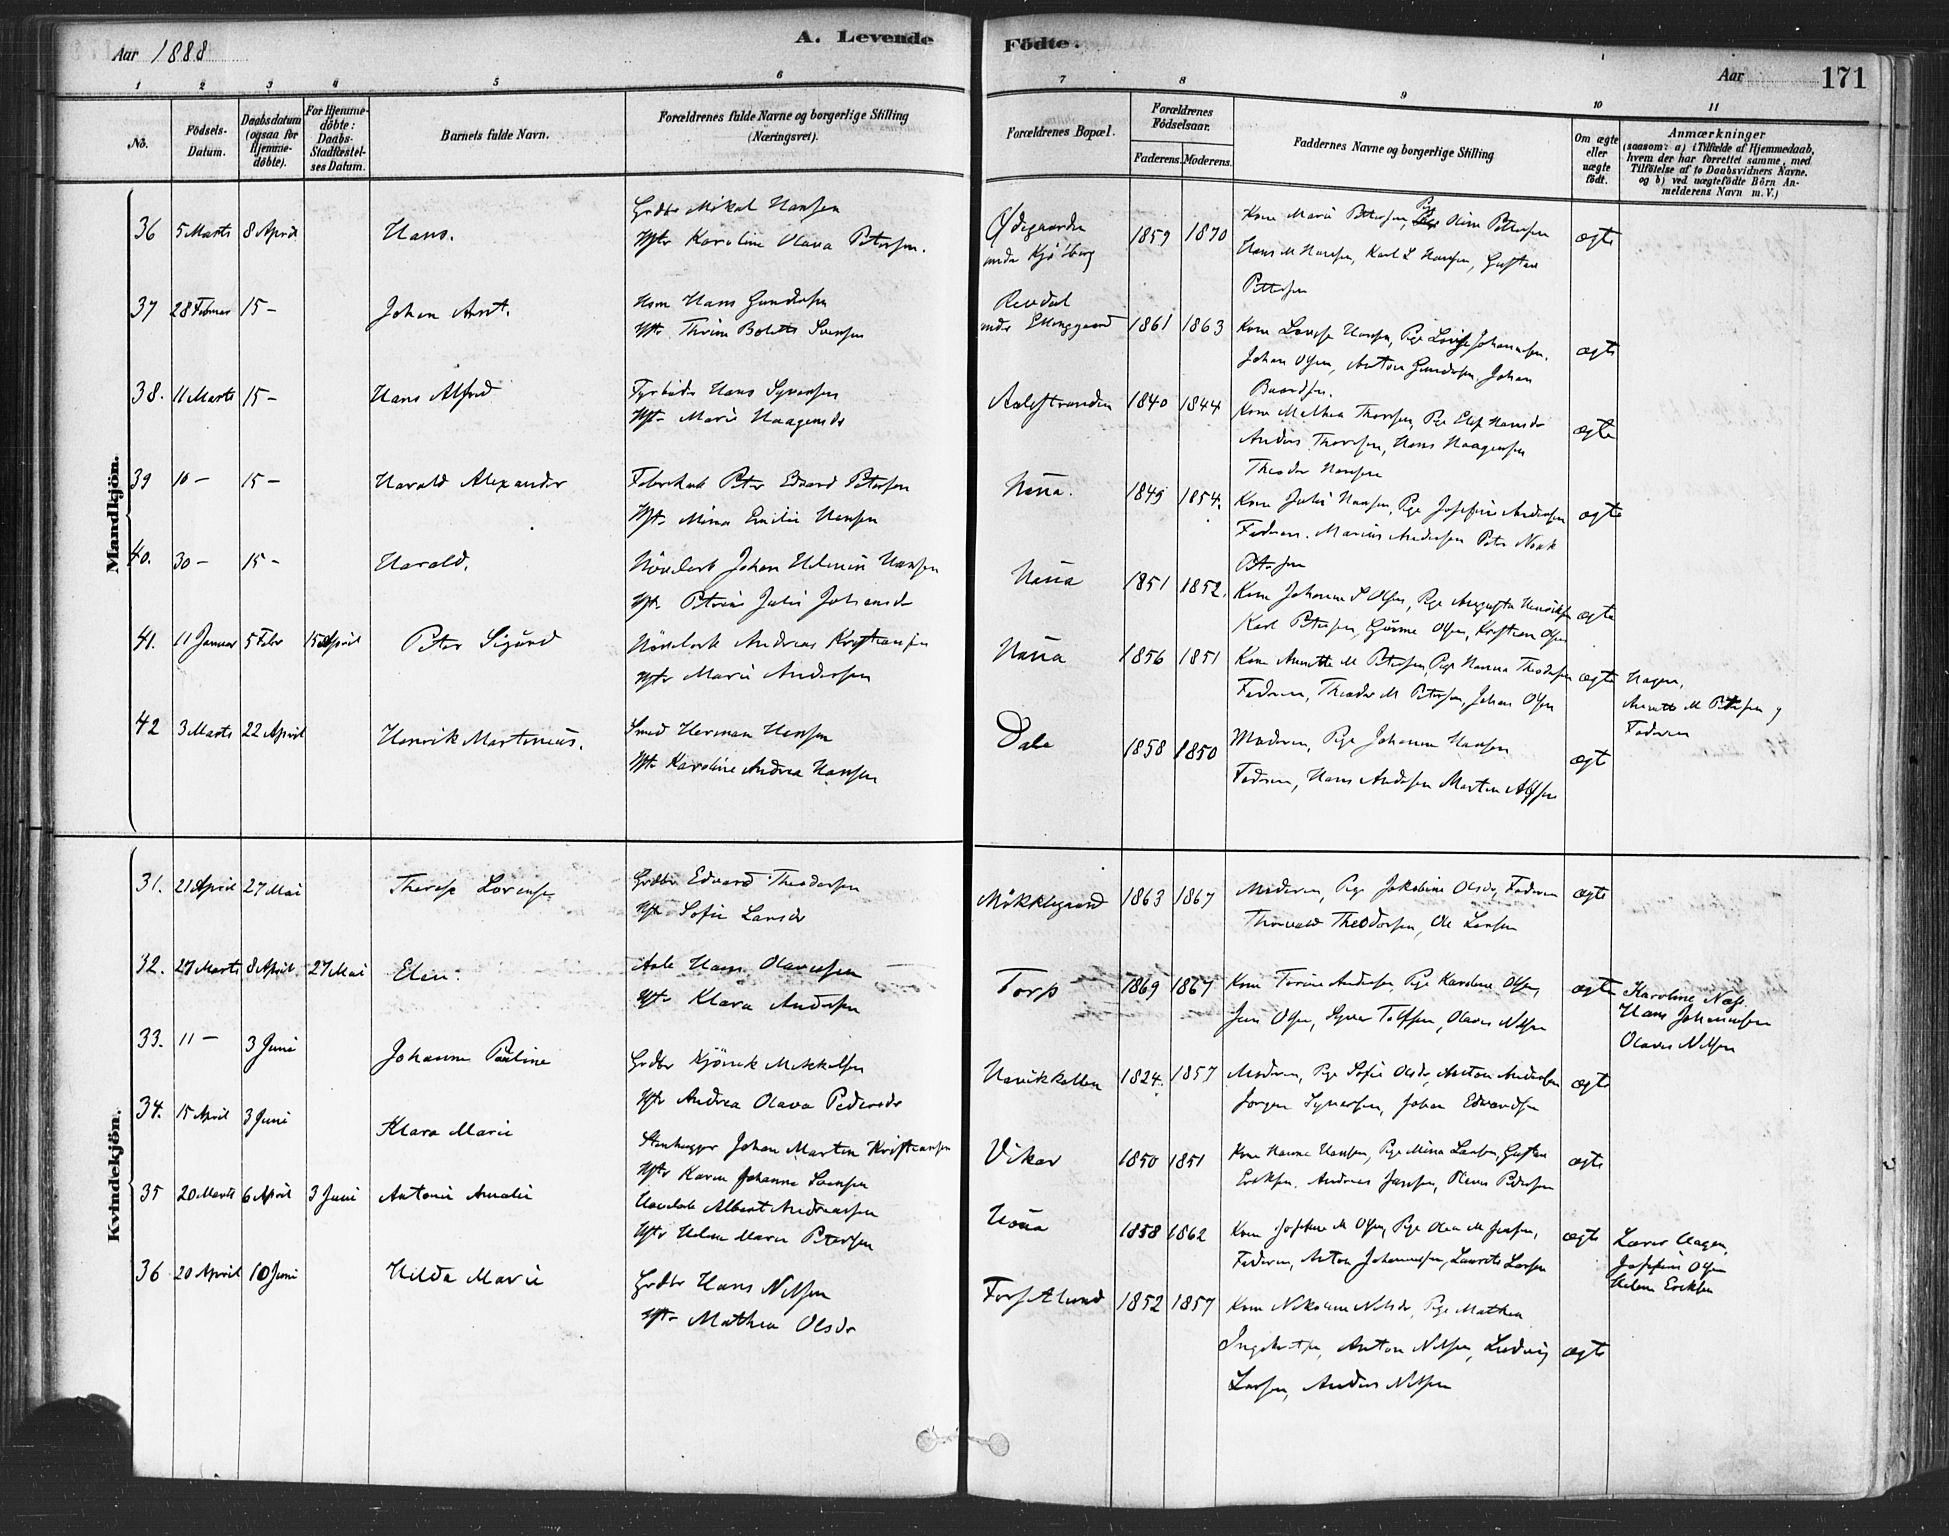 Aar 1888
A. Levende
Födte.
Aar
171
1 2 3 4 5 6 7 8 9 10 11
No.
Födsels-
Datum.
Daabsdatum
(ogsaa for
Hjemme-
döbte).
For Hjemme-
döbte:
Daabs-
Stadfæstel-
ses Datum.
Barnets fulde Navn.
Forældrenes fulde Navne og borgerlige Stilling
(Næringsvei).
Forældrenes Bopæl.
Forældrenes
Födselsaar.
Faderens. Moderens.
Faddernes Navne og borgerlige Stilling
Om ægte
eller
uægte
födt.
Anmærkninger
(saasom: a) i Tilfælde af Hjemmedaab,
hvem der har forrettet samme, med
Tilföielse af to Daabsvidners Navne,
og b) ved uægtefödte Börn An-
melderens Navn m. V.)
Mandkjön.
36 5 Marts 8 April Hans.
Grdbr Mikal Hansen
Hstr Karoline Olava Petersen.
Ødegaarden
under Kjölberg
1859 1870
Kone Marie Petersen, Pige Oline Pettersen
Hans M Hansen, Karl L Hansen, Gustav
Pettersen
ægte
37 28 Februar 15 - Johan Arnt.
Hans Gundersen
Hstr Thrine Bolette Svensen
Revdal
1861 1863
Kone Lovise Hansen, Pige Lovise Johannesen.
Johan Olsen, Anton Gundersen, Johan
Baardsen.
ægte
38. 11 Marts 15 - Hans Alfred
Hans Syversen
Hstr Marie Haagensdr
Aalestranden
1840 1844
Kone Mathea Thoresen, Pige Hansdr
Anders Thoresen, Hans Haagensen
Theodor Hansen
ægte
39 10 - 15 - Harald Alexander
Peter Edvard Petersen
Hstr Mina Emilie Hansen
Nöua.
1849 1854.
Kone Julie Hansen, Pige Josefine Andersen
Faderen. Marius Andersen Peter
Petersen
ægte
40. 30 - 15 - Harald.
Hövlarb Johan Helmin Hansen
Hstr Petrine Julie Johansdr
Nöua
1851 1852.
Kone Johanne S Olsen, Pige Augusta Henriksen
Karl Petersen, Olsen, Kristian Olsen
ægte
41. 11 Januar 5 Febr 15 April Peter Sigurd
Hövlarb Andreas Kristiansen
Hstr Marie Andersen
Nöua
1856 1851
Kone Annette M Petersen, Pige Hanna Theodorsen
Faderen, Theodor M Petersen, Johan Olsen
ægte
Hagen,
Annette M Petersen og
Faderen
42 3 Marts 22 April Henrik Martinius.
Smed Herman Hansen
Hstr Karoline Andrea Hansen
Dale
1858 1850
Moderen, Pige Johanne Hansen
Faderen, Hans Andersen Martin
ægte
Kvindekjön.
31. 21 April 27 Mai
Grdbr Edvard Theodorsen
Hstr Sofie Larsdr
Mökklegaard
1863 1867
Moderen, Pige Jakobine Olsdr, Faderen
Thorvald Theodorsen, Ole Larsen
ægte
32. 27 Marts 8 April. 27 Mai
Hans Olavesen
Hstr Klara Andersen
Torp
1869 1867
Kone Torine Andersen, Pige Karoline Olsen,
Jens Olsen, Syver, Olaves Nilsen
ægte
Karoline Næs.
Hans Johannesen
Olaves Nilsen
33. 11 - 3 Juni Johanne Pauline
Grdbr Kjönik Mikkelsen
Hstr Andrea Olava Pedersdr
1824. 1857
Moderen, Pige Sofie Olsdr, Anton Andersen
Jörgen Syversen, Johan Edvardsen
ægte
34. 15 April 3 Juni Klara Marie
Stenhugger Johan Martin Kristiansen
Hstr Karen Johanne Larsen
Viker
1850 1851
Kone Hanna Hansen, Pige Mina Larsen, Gustav
Eriksen. Andreas Jansen, Petersen
ægte
35 20 Marts 6 April 3 Juni Antonie Amalie
Albert Andreassen
Hstr Helene Marie Petersen
Nöua
1858 1862
Kone Josefine M Olsen, Pige Olea M Jensen,
Faderen, Anton Johannesen, Laurits Larsen
ægte
Lærer Hagen,
Josefine Olsen
Helene Eriksen
36 20 April 10 Juni Hilda Marie
Grdbr Hans Nilsen
Hstr Mathea Olsdr
1852 1857
Kone Nikoline Nilsdr, Pige Mathea
Anton Nilsen, Ludvig
Larsen, Anders Nilsen
ægte